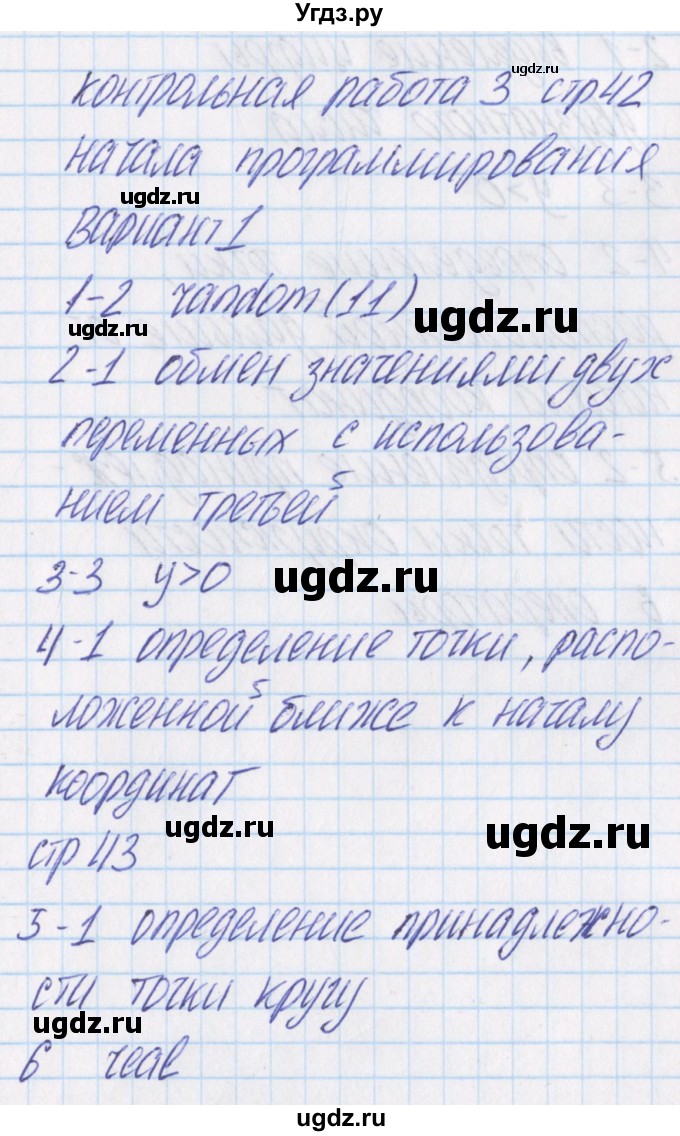 Угдз.ру
ugdz.ru
контрольная работа 3 стр 42
начала программирования
ugdz.ru
Вариант 1
1-2 random(11)
ugdz.ru
ugdz.ru
2-1 обмен значениями двух
переменных с использова-
нием третьей
3-3 y>0
ugdz.ru
4-1 определение точки, распо-
ложенной ближе к началу
координат
ugdz.ru
ugdz.ru
стр 43
5-1 определение принадлежно-
сти точки кругу
ugdz.ru
ugdz.ru
6 real
ugdz.ru